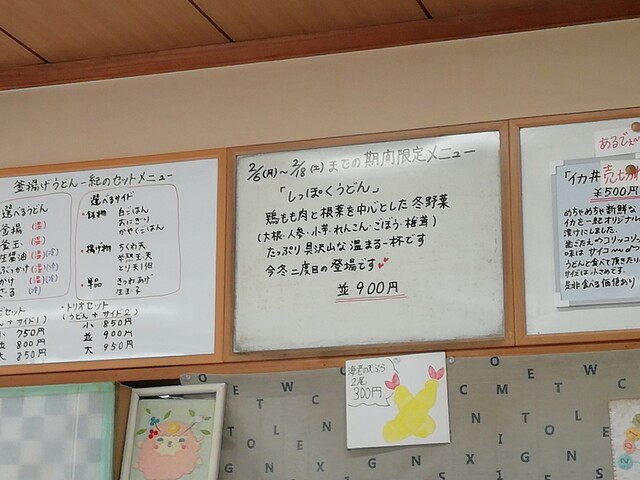 釜揚げうどん一紀のセットメニュー
選べるうどん
釜揚 (温)
釜玉 (温)
生醤油 (温)(冷)
ぶっかけ (温)(冷)
かけ (温)(冷)
ざる (冷)
選べるサイド
・鉢物 白ごはん
おにぎり
かやくごはん
・揚げ物 ちくわ天
半熟玉天
とり天1個
・単品 きつねあげ
生玉子
セット
(うどん+サイド1)
小 750円
並 800円
大 850円
・トリオセット
(うどん+サイド2)
小 850円
並 900円
大 950円
2/6(月)〜2/18(土)までの期間限定メニュー
「しっぽくうどん」
鶏もも肉と根菜を中心とした冬野菜
(大根・人参・小芋・れんこん・ごぼう・椎茸)
たっぷり具沢山な温まる一杯です
今冬二度目の登場です
並900円
あるでぇ〜
「イカ丼 売り切れ
¥500円
めちゃめちゃ新鮮な
イカを一紀オリジナル
漬けにしました。
歯ごたえ コリッコリッ
味は サイコ〜
うどんと食べて頂きたい
サイズは小さめです。
是非食べる価値あり
海老の天ぷら
2尾
300円